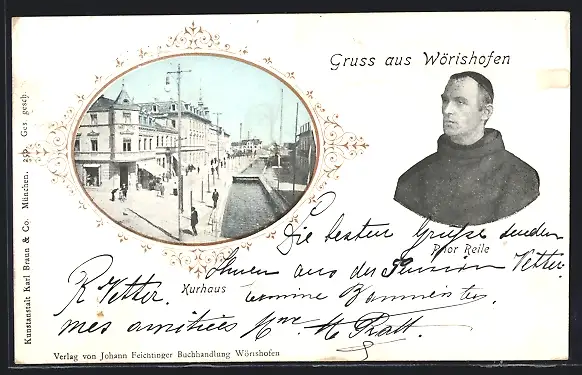 Gruss aus Wörishofen
Prior Reile
Kurhaus
Die besten Grüße senden
Ihnen aus der Pension Vetter
R. Vetter. Hermine Baumeister
mes amitiées Mme. M. Pratt.
Kunstanstalt Karl Braun & Co. München. 259. Ges. gesch.
Verlag von Johann Feichtinger Buchhandlung Wörishofen